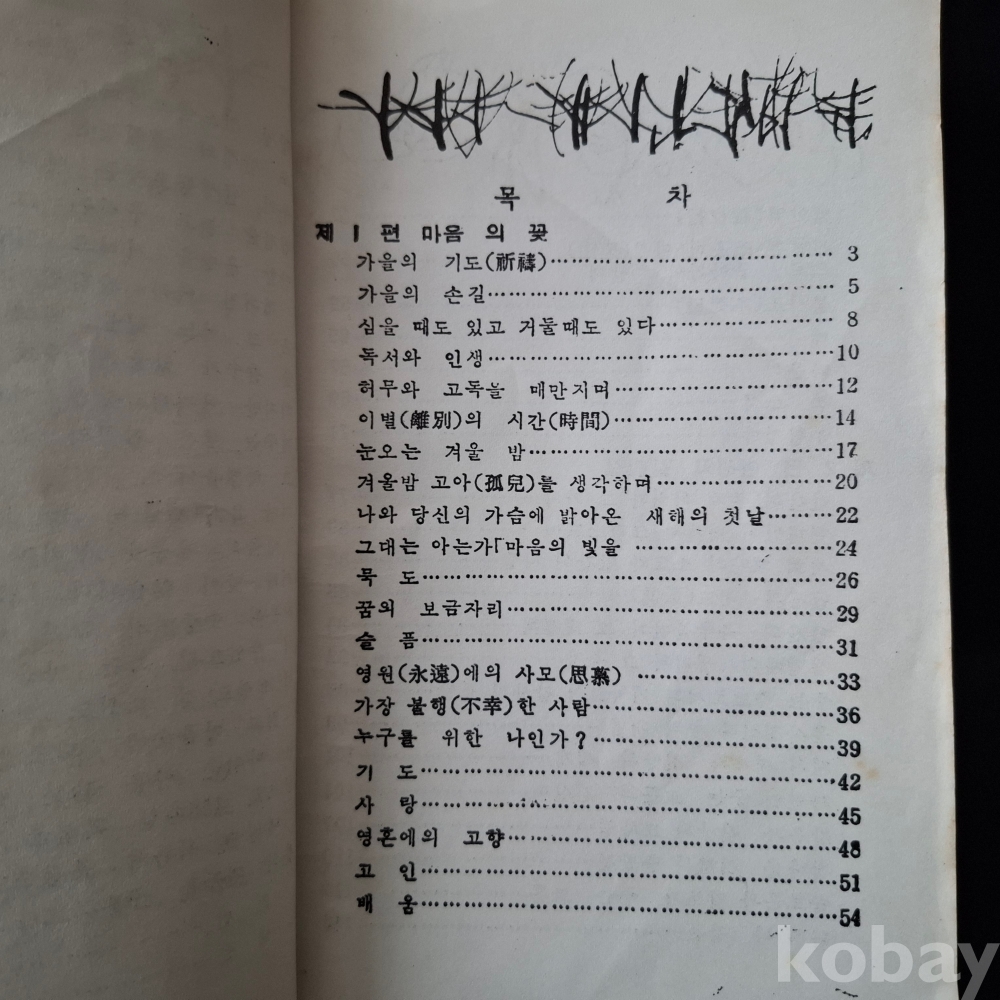 목 차
제 1 편 마음 의 꽃
가을의 기도(祈禱)…………………………………… 3
가을의 손길…………………………………… 5
심을 때도 있고 거둘때도 있다…………………… 8
독서와 인생……………………………………10
허무와 고독을 매만지며…………………………12
이별(離別)의 시간(時間)…………………………14
눈오는 겨울 밤…………………………………17
겨울밤 고아(孤兒)를 생각하며……………………20
나와 당신의 가슴에 밝아온 새해의 첫날………22
그대는 아는가「마음의 빛을 ……………………24
묵 도……………………………………………26
꿈의 보금자리……………………………………29
슬 픔……………………………………………31
영원(永遠)에의 사모(思慕) ………………………33
가장 불행(不幸)한 사람…………………………36
누구를 위한 나인가?……………………………39
기 도……………………………………………42
사 랑……………………………………………45
영혼에의 고향……………………………………48
고 인……………………………………………51
배 움……………………………………………54
kobay